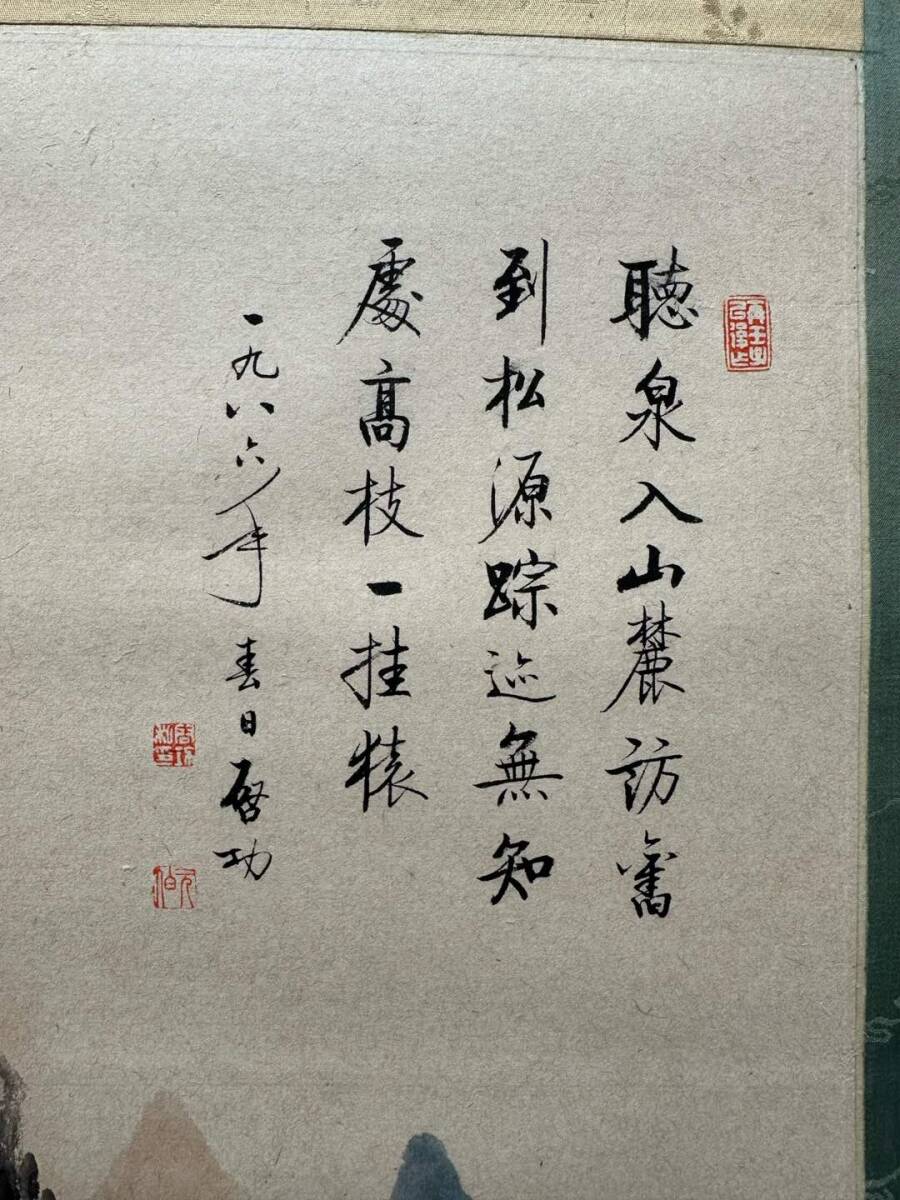 聽泉入山麓訪舊
到松源踪迹無知
處高枝一挂猿
一九八六年春日啓功